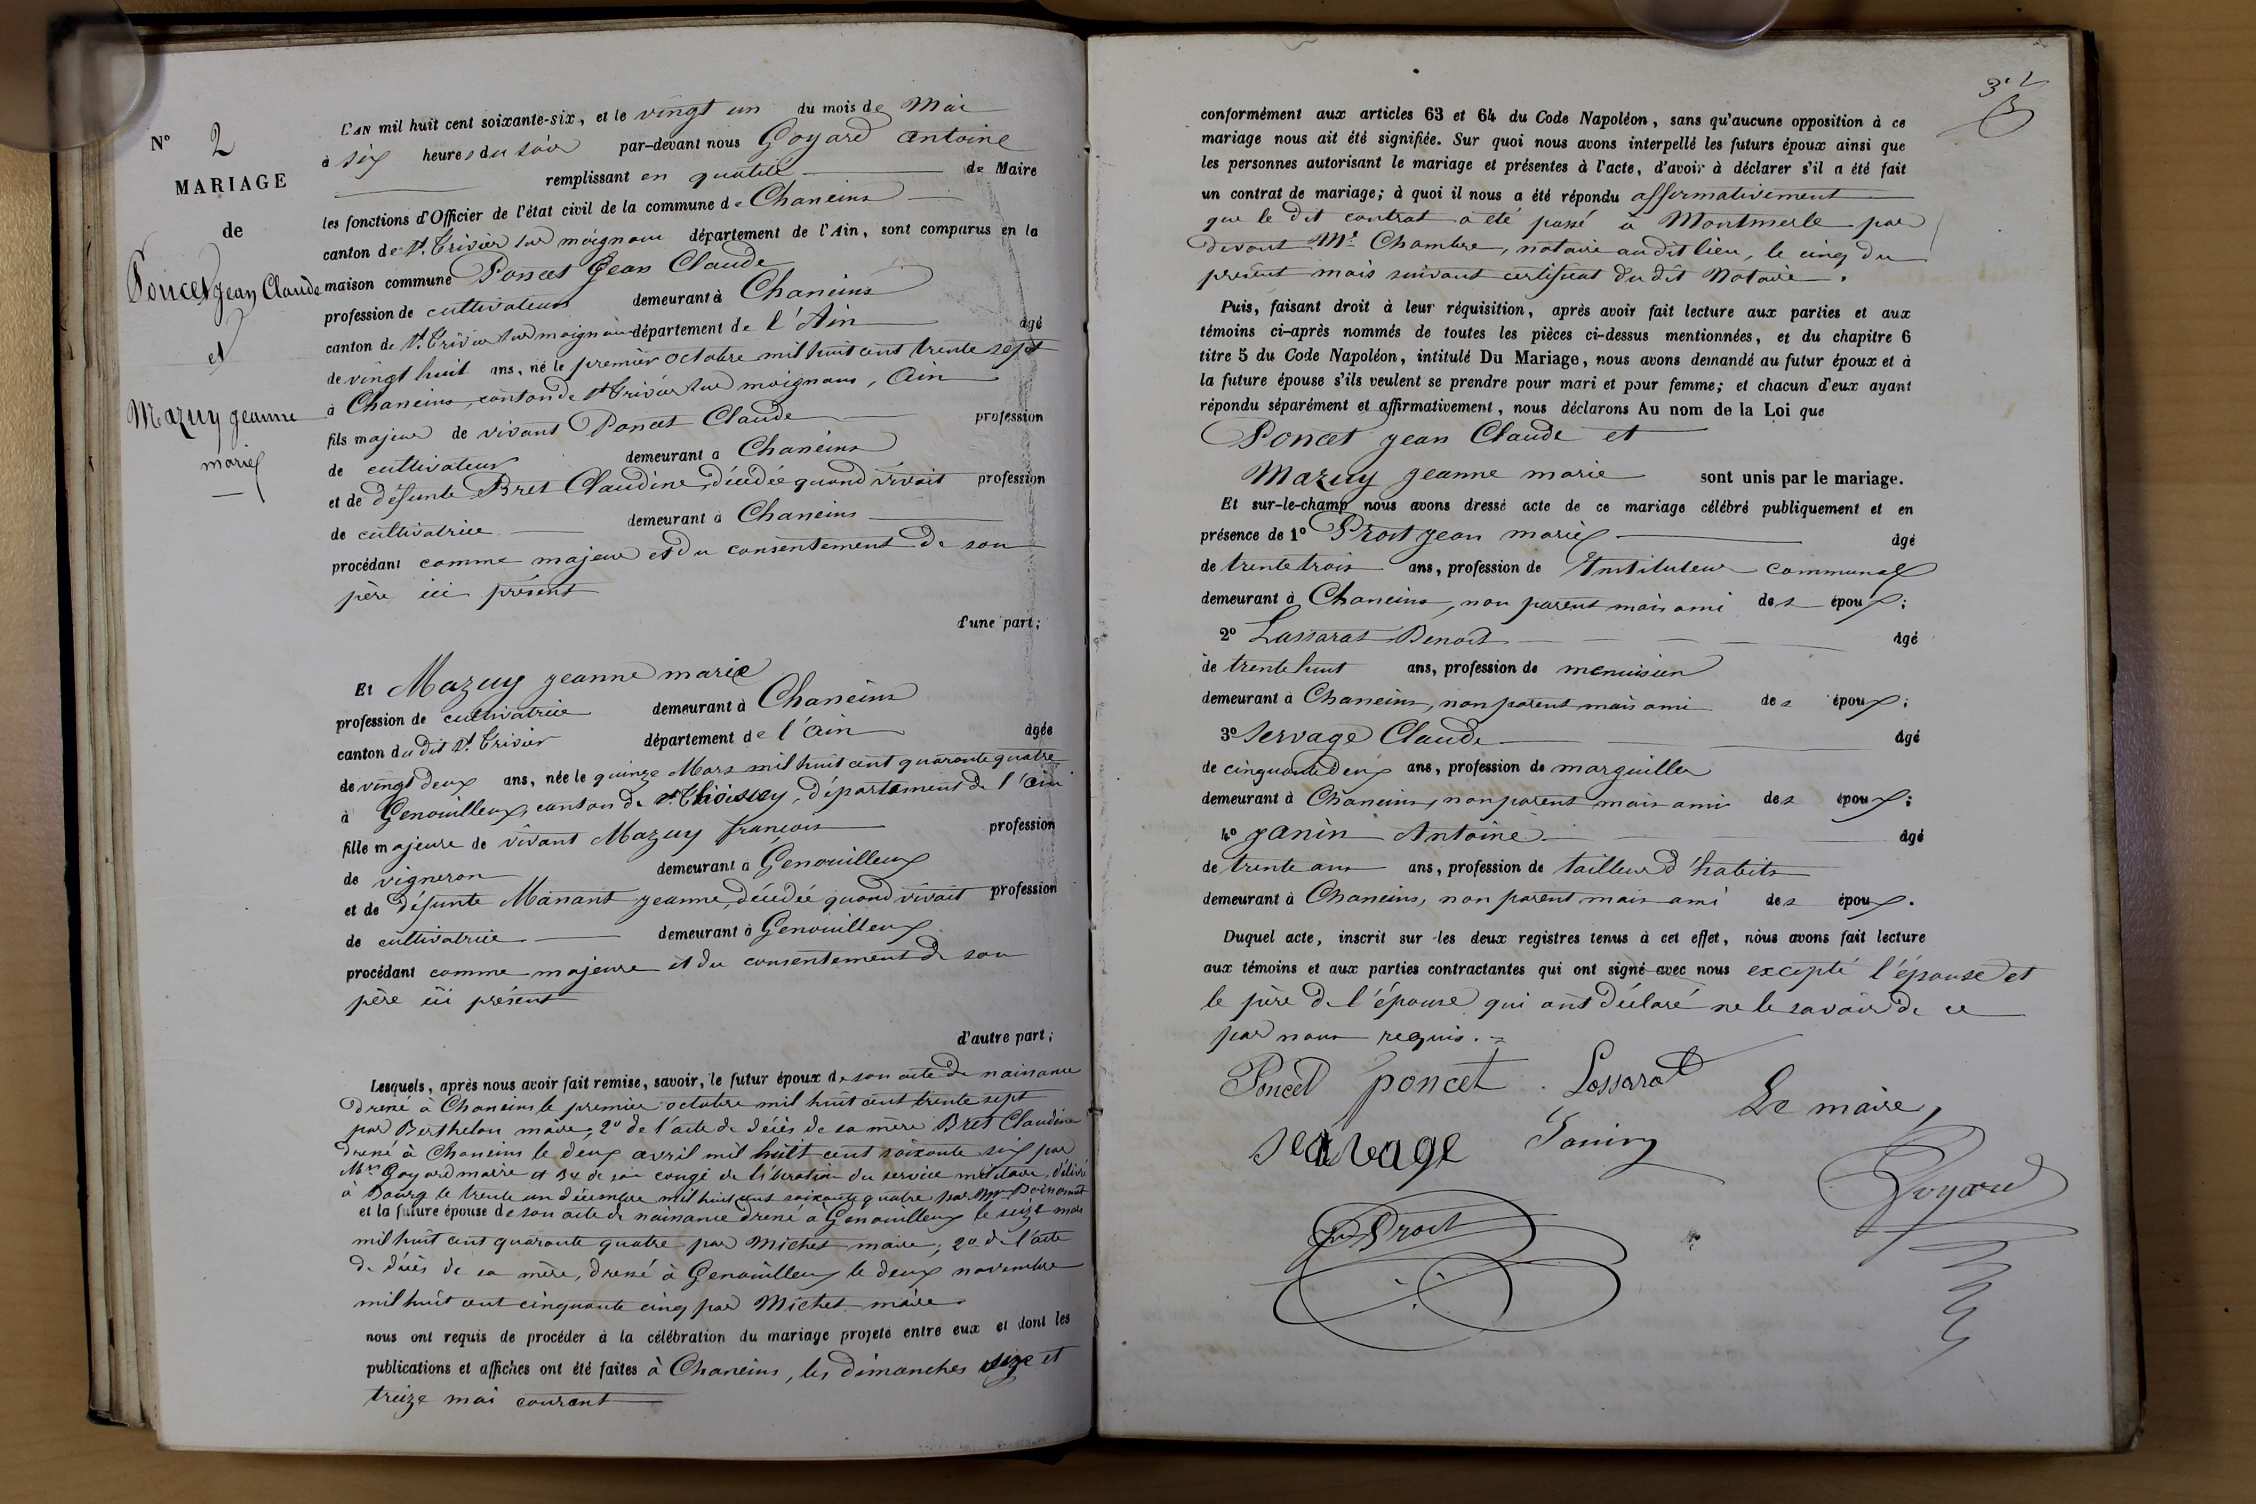 N° 2
MARIAGE
de
Poncet Jean Claude
et
Mazuy jeanne
marie
L'AN mil huit cent soixante-six, et le vingt un du mois de Mai
à six heures du soir par-devant nous Goyard Antoine
remplissant en qualité de Maire
les fonctions d'Officier de l'état civil de la commune de Chaneins
canton de St Trivier sur moignans département de l'Ain, sont comparus en la
maison commune Poncet Jean Claude
profession de cultivateur demeurant à Chaneins
canton de St Trivier sur moignans département de l'Ain âgé
de vingt huit ans, né le premier octobre mil huit cent trente sept
à Chaneins, canton de St Trivier sur moignans, Ain
fils majeur de vivant Poncet Claude profession
de cultivateur demeurant à Chaneins
et de défunte Bret Claudine, décédée quand vivait profession
de cultivatrice demeurant à Chaneins
procédant comme majeur et du consentement de son
père ici présent
d'une part;
Et Mazuy jeanne marie
profession de cultivatrice demeurant à Chaneins
canton du dit St Trivier département de l'Ain âgée
de vingt deux ans, née le quinze Mars mil huit cent quarante quatre
à Genouilleux, canton de Thoissey, département de l'Ain
fille majeure de vivant Mazuy françois profession
de vigneron demeurant à Genouilleux
et de défunte Manant jeanne, décédée quand vivait profession
de cultivatrice demeurant à Genouilleux
procédant comme majeure et du consentement de son
père ici présent
d'autre part;
Lesquels, après nous avoir fait remise, savoir, le futur époux de son acte de naissance
dressé à Chaneins le premier octobre mil huit cent trente sept
par Berthelon maire; 2° de l'acte de décès de sa mère Bret Claudine
dressé à Chaneins le deux avril mil huit cent soixante six par
Mr Goyard maire et 3° de son congé de libération du service militaire, délivré
à Bourg le trente un décembre mil huit cent soixante quatre par Mr
et la future épouse de son acte de naissance dressé à Genouilleux le seize mars
mil huit cent quarante quatre par Michet maire; 2° de l'acte
de décès de sa mère, dressé à Genouilleux le deux novembre
mil huit cent cinquante cinq par Michet maire
nous ont requis de procéder à la célébration du mariage projeté entre eux et dont les
publications et affiches ont été faites à Chaneins, les dimanches et
treize mai courant
conformément aux articles 63 et 64 du Code Napoléon, sans qu'aucune opposition à ce
mariage nous ait été signifiée. Sur quoi nous avons interpellé les futurs époux ainsi que
les personnes autorisant le mariage et présentes à l'acte, d'avoir à déclarer s'il a été fait
un contrat de mariage; à quoi il nous a été répondu affirmativement
que le dit contrat a été passé à Montmerle par
devant Me Chambre, notaire au dit lieu, le cinq du
présent mois suivant certificat du dit Notaire.
Puis, faisant droit à leur réquisition, après avoir fait lecture aux parties et aux
témoins ci-après nommés de toutes les pièces ci-dessus mentionnées, et du chapitre 6
titre 5 du Code Napoléon, intitulé Du Mariage, nous avons demandé au futur époux et à
la future épouse s'ils veulent se prendre pour mari et pour femme; et chacun d'eux ayant
répondu séparément et affirmativement, nous déclarons Au nom de la Loi que
Poncet jean Claude et
Mazuy jeanne marie sont unis par le mariage.
Et sur-le-champ nous avons dressé acte de ce mariage célébré publiquement et en
présence de 1° Proit jean marie âgé
de trente trois ans, profession de Instituteur communal
demeurant à Chaneins, non parent mais ami des époux;
2° Lassarat Benoit âgé
de trente huit ans, profession de menuisier
demeurant à Chaneins, non parent mais ami des époux;
3° Servage Claude âgé
de cinquante deux ans, profession de marguiller
demeurant à Chaneins, non parent mais ami des époux;
4° Janin Antoine âgé
de trente ans ans, profession de tailleur d'habits
demeurant à Chaneins, non parent mais ami des époux.
Duquel acte, inscrit sur les deux registres tenus à cet effet, nous avons fait lecture
aux témoins et aux parties contractantes qui ont signé avec nous excepté l'épouse et
le père de l'épouse qui ont déclaré ne le savoir de ce
par nous requis.
Poncet poncet Lassarat
Le maire,
servage Janin
Goyard
Proit